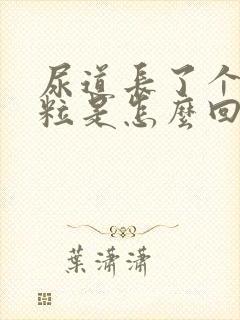 尿道長了个
粒是怎麼回
葉瀟瀟